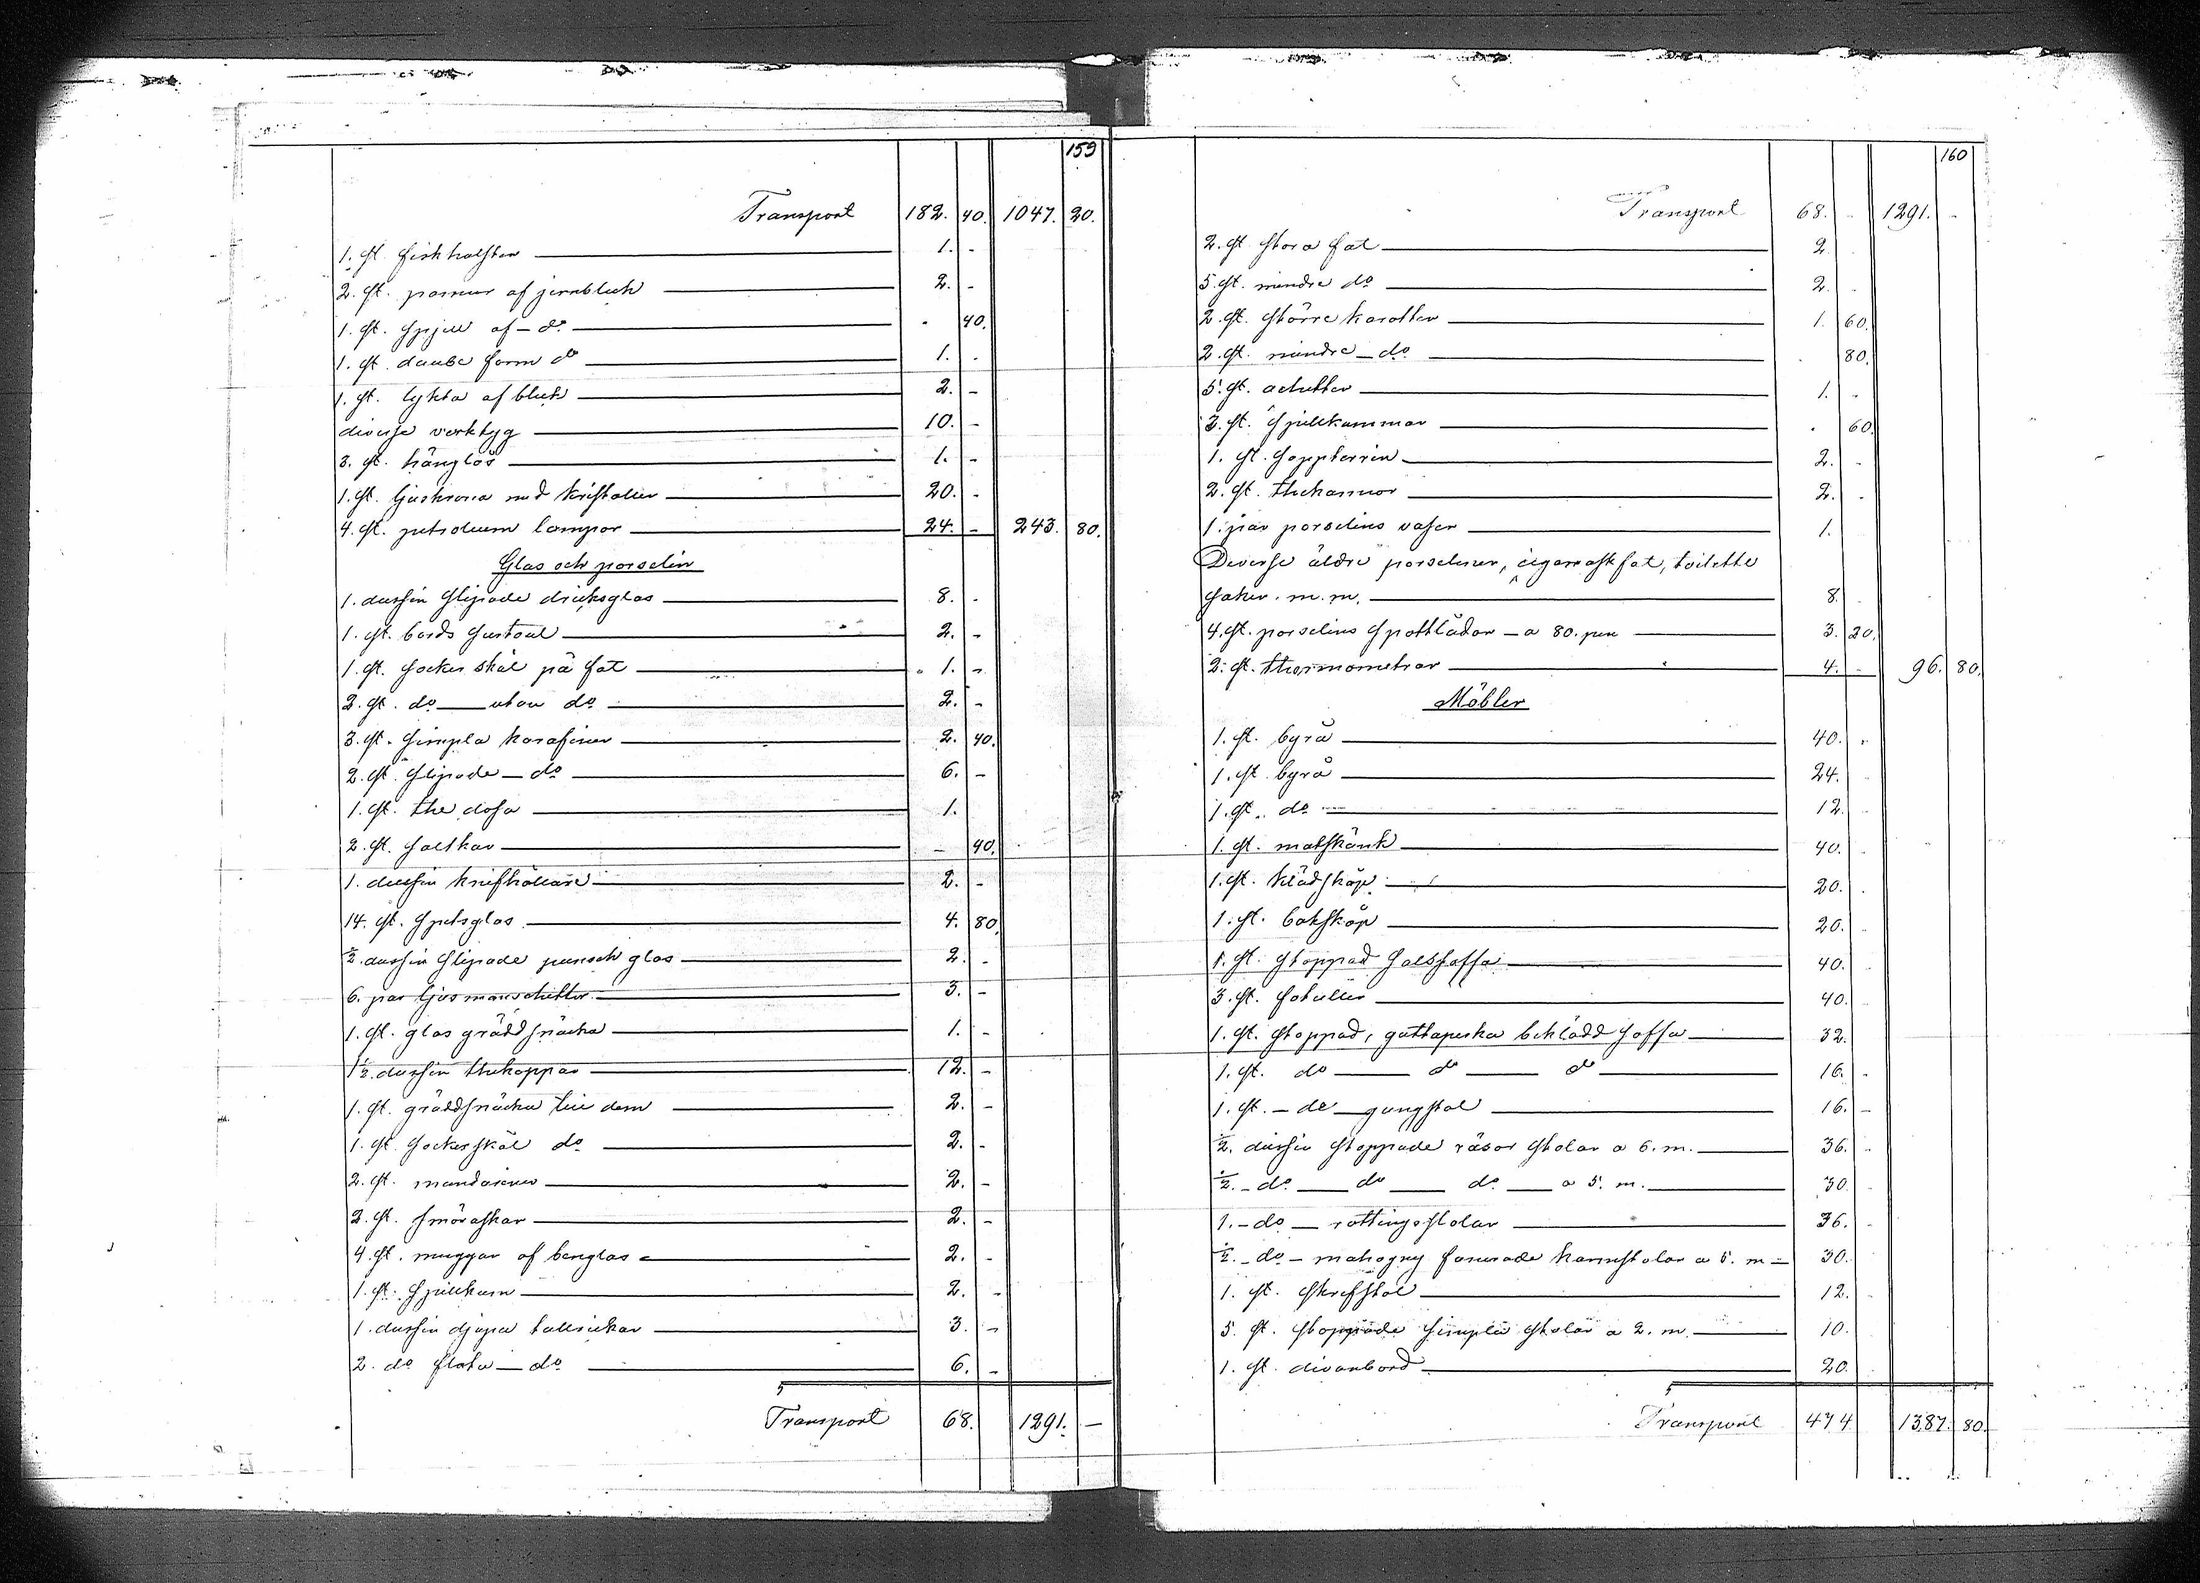 159
Transport 182. 40. 1047. 20.
1. st. fiskhalster 1. -
2. st. pannor af jernbleck 2. -
1. st. spjell af - do . 40.
1. st. daube form do 1. .
1. st. lykta af bleck 2. -
diverse verktyg 10. -
3. st. hänglås 1. -
1. st. ljuskrona med kristaller 20. -
4. st. petroleum lampor 24. - 243. 80.
Glas och porselin
1. dussin slipade dricksglas 8. .
1. st. bords surtout 2. -
1. st. socker skål på fat 1. -
2. st. do utan do 2. -
3. st. simpla karafiner 2. 40.
2. st. slipade - do 6. -
1. st. the dosa 1.
2. st. saltkar - 40.
1. dussin knifhållare 2. -
14. st. spetsglas 4. 80.
½ dussin slipade punsch glas 2. -
6. par ljusmanschetter 3. -
1. st. glas gräddsnäcka 1. -
1½ dussin thekoppar 12. -
1. st. gräddsnäcka till dem 2. -
1. st. sockerskål do 2. -
2. st. mandariner 2. -
2. st. smöraskar 2. -
4. st. muggar af benglas 2. -
1. st. spillkum 2. -
1 dussin djupa tallrickar 3. -
2. do flata - do 6. -
Transport 68. 1291. -
160
Transport 68. - 1291. -
2. st. stora fat 2
5. st. mindre do 2. .
2. st. större karotter 1. 60.
2. st. mindre - do . 80.
5. st. achetter 1. .
3. st. spillkummar . 60.
1. st. soppterrin 2. .
2. st. thekannor 2. .
1. par porselins vaser 1.
Diverse äldre porseliner, cigarraskfat, toilette
saker. m. m. 8.
4. st. porselins spottlådor - a 80. pen 3. 20.
2. st. thermometrar 4. - 96. 80.
Möbler
1. st. byrå 40. .
1. st. byrå 24.
1. st. do 12.
1. st. matskänk 40.
1. st. klädskåp 20. .
1. st. bokskåp 20. .
1. st. stoppad salssoffa 40.
3. st. fotuller 40.
1. st. stoppad, guttaperka beklädd soffa 32.
1. st. do do do 16. .
1. st. - do gungstol 16. -
½. dussin stoppade räsor stolar a 6. m. 36. .
½. - do do do a 5. m. 30.
1. - do rottingsstolar 36. .
½. - do - mahogny fanerade karmstolar a 5. m 30.
1. st. skrifstol 12.
5. st. stoppade simpla stolar a 2. m 10.
1. st. divanbord 20.
Transport 474 1387. 80.